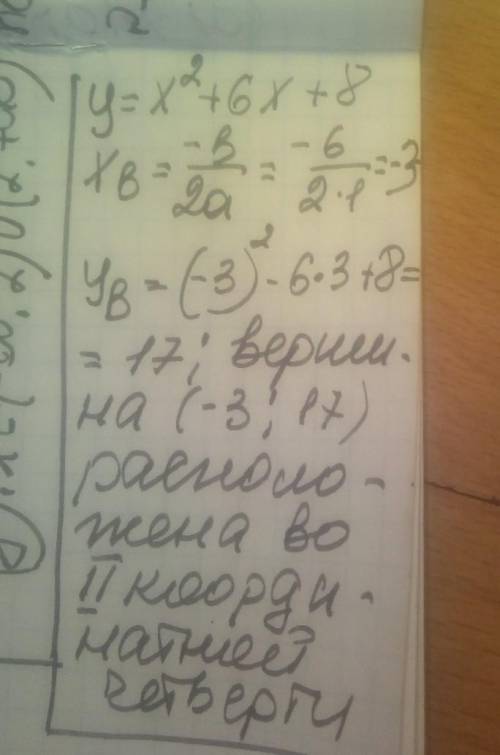 y = x² + 6x + 8
x_B = -b/2a = -6/2·1 = -3
y_B = (-3)² - 6·3 + 8 =
= 17; верши-
на (-3; 17)
располо-
жена во
II коорди-
натной
четверти